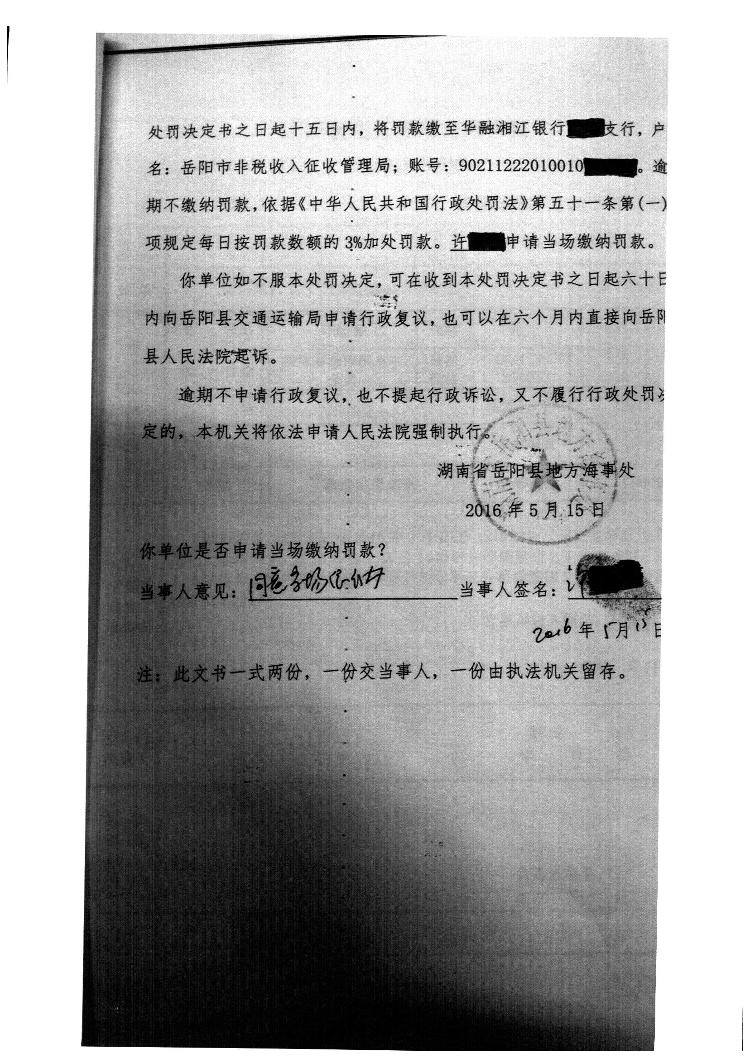 处罚决定书之日起十五日内，将罚款缴至华融湘江银行支行，户
名：岳阳市非税收入征收管理局；账号：90211222010010。逾
期不缴纳罚款，依据《中华人民共和国行政处罚法》第五十一条第(一)
项规定每日按罚款数额的3%加处罚款。许申请当场缴纳罚款。
你单位如不服本处罚决定，可在收到本处罚决定书之日起六十日
内向岳阳县交通运输局申请行政复议，也可以在六个月内直接向岳阳
县人民法院起诉。
逾期不申请行政复议，也不提起行政诉讼，又不履行行政处罚决
定的，本机关将依法申请人民法院强制执行。
湖南省岳阳县地方海事处
2016年5月15日
你单位是否申请当场缴纳罚款？
当事人意见：同意当场缴纳 当事人签名：
2016年5月15日
注：此文书一式两份，一份交当事人，一份由执法机关留存。